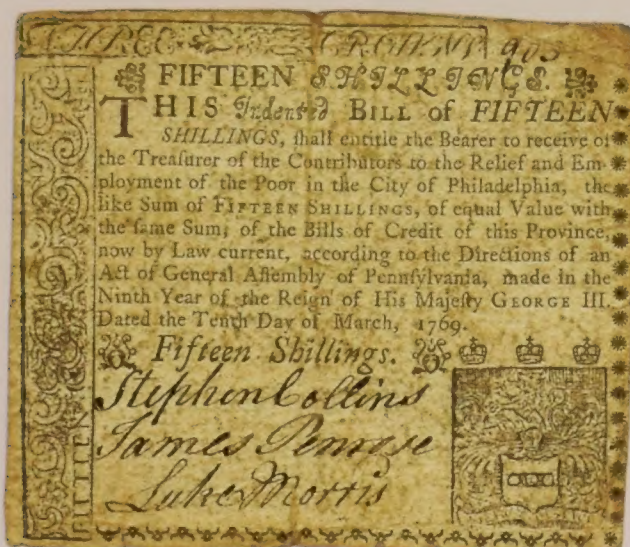 THREE CROWNS 903
FIFTEEN SHILLINGS.
THIS Indented BILL of FIFTEEN
SHILLINGS, ſhall entitle the Bearer to receive of
the Treaſurer of the Contributors to the Relief and Em-
ployment of the Poor in the City of Philadelphia, the
like Sum of FIFTEEN SHILLINGS, of equal Value with
the ſame Sum, of the Bills of Credit of this Province,
now by Law current, according to the Directions of an
Act of General Aſſembly of Pennſylvania, made in the
Ninth Year of the Reign of His Majeſty GEORGE III.
Dated the Tenth Day of March, 1769.
Fifteen Shillings.
Stephen Collins
James Penrose
Luke Morris
FIFTEEN